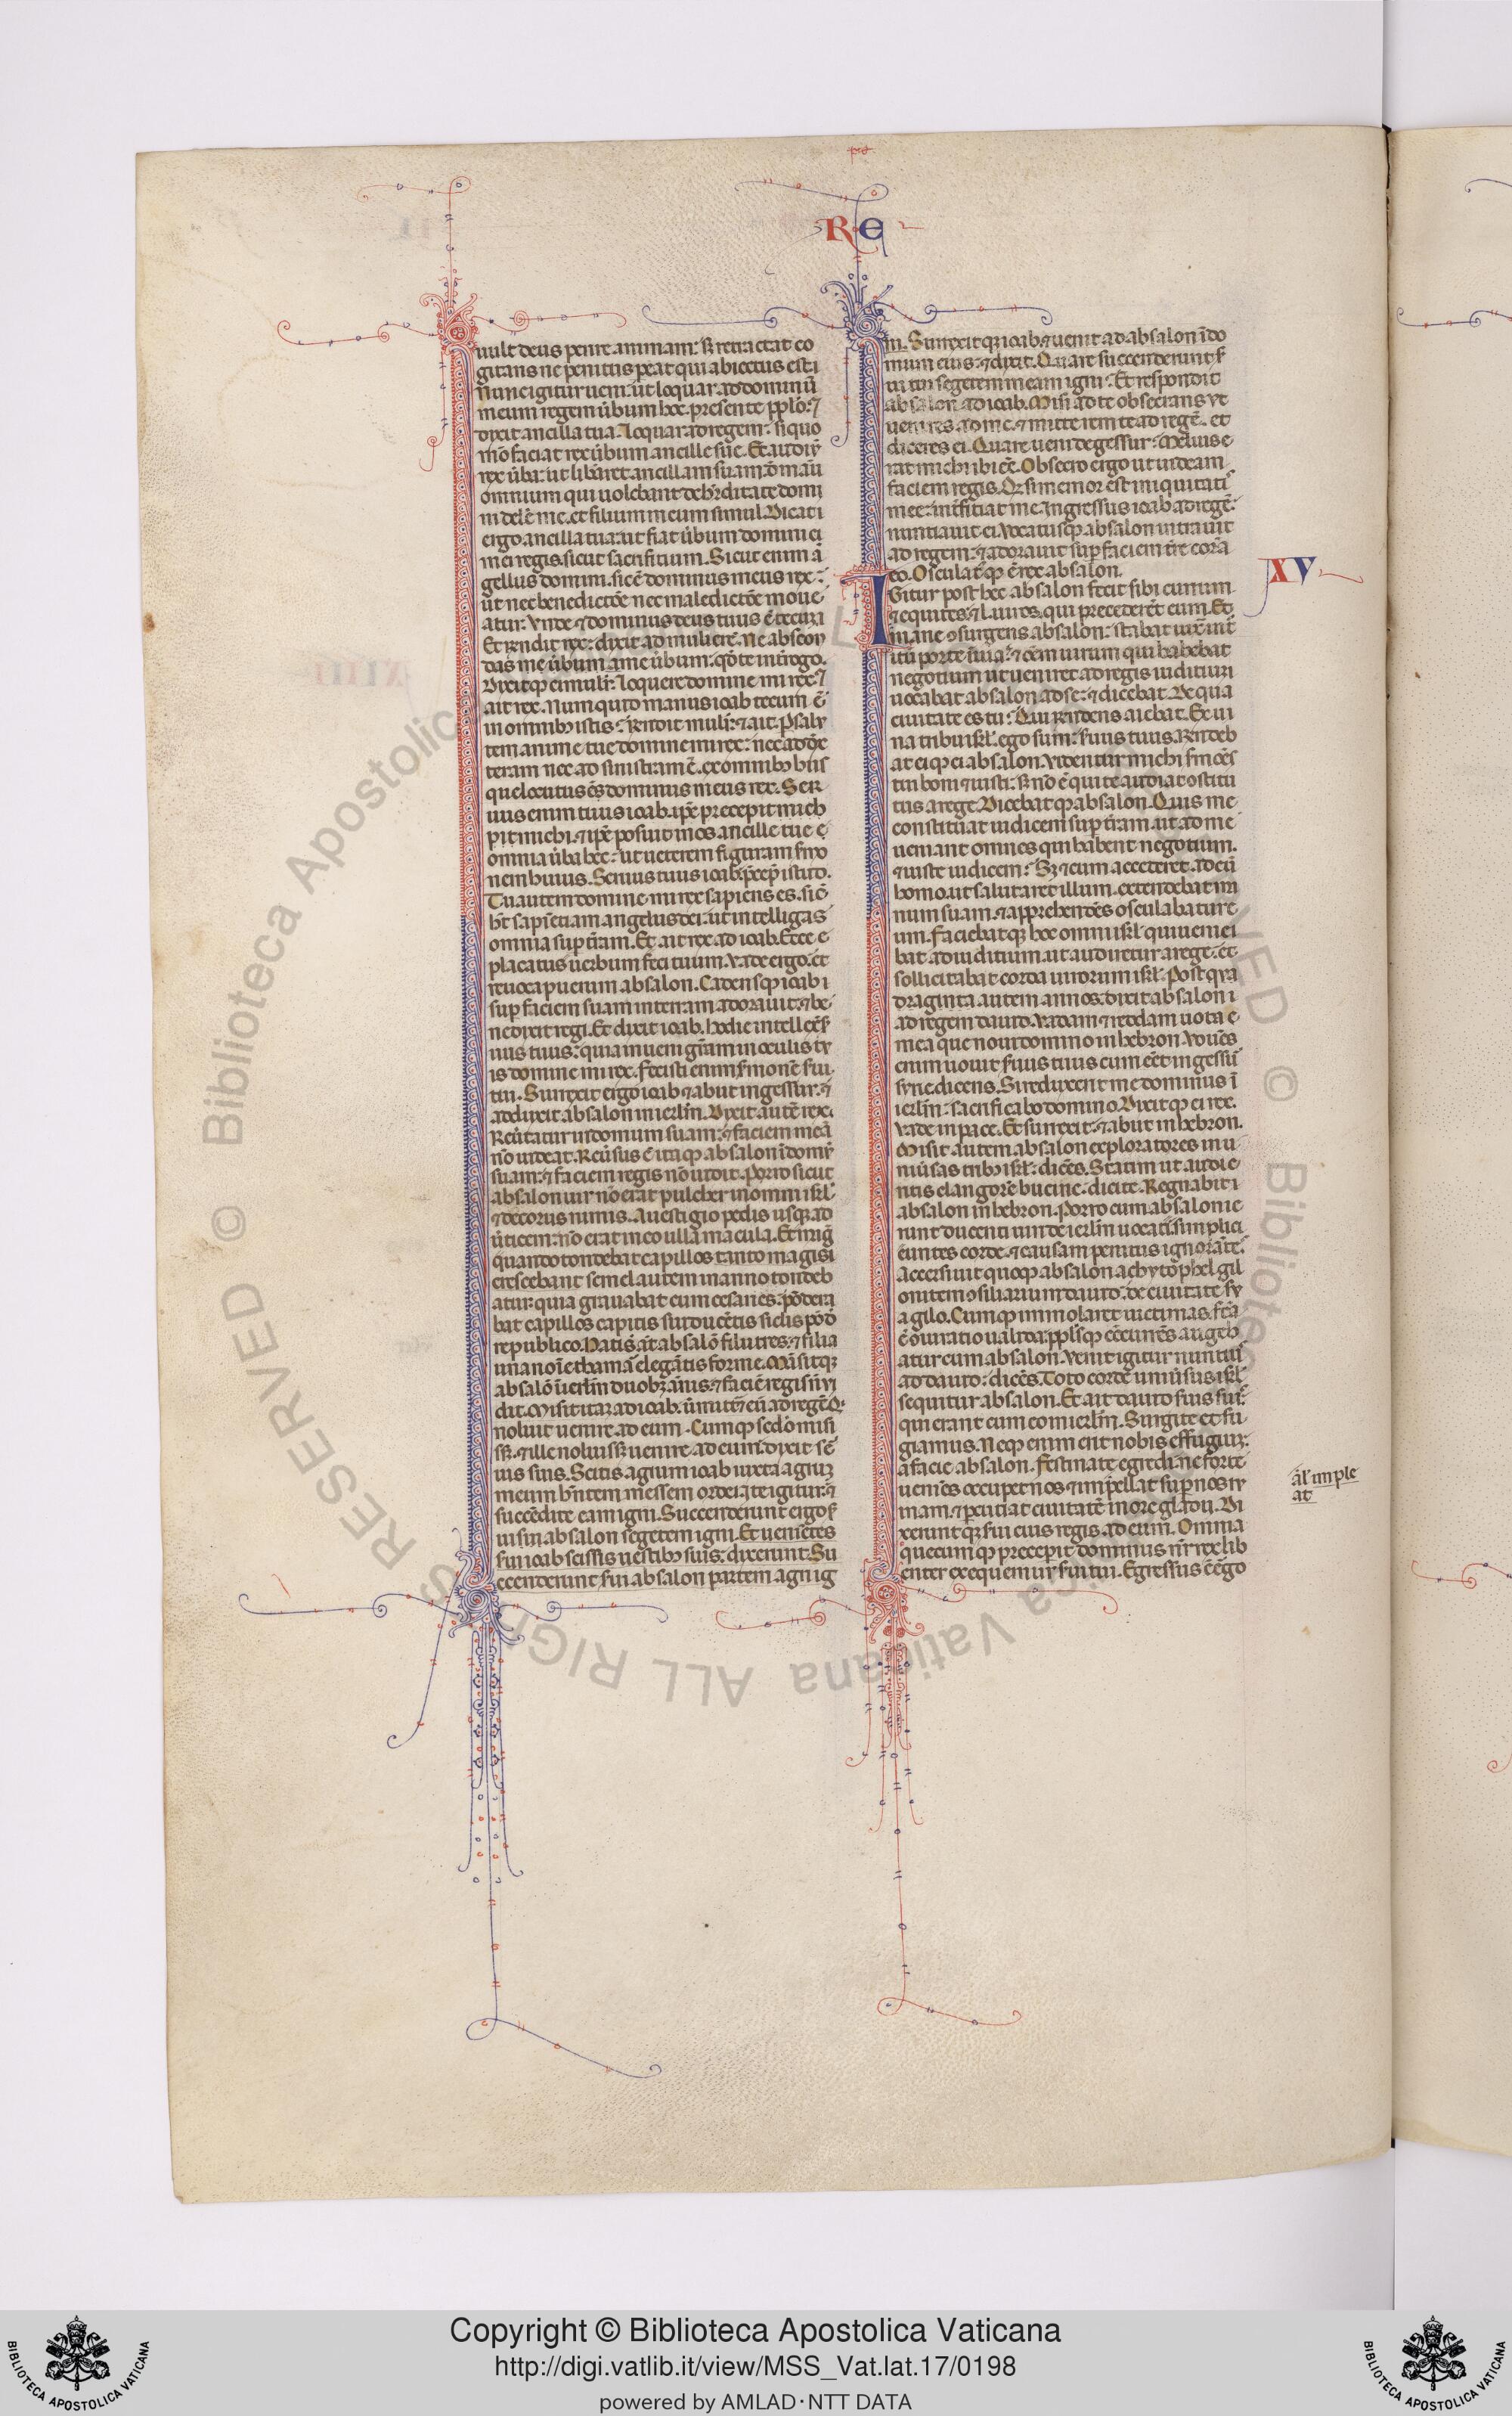 RE
uult deus perire animam: sȝ retractat co
gitans ne penitus pereat qui abiectus est i
Nunc igitur ueni. ut loquar ad dominũ
meum regem ûbum hoc. presente pplo: ⁊
dixit ancilla tua. loquar ad regem: si quo
mõ faciat rex ûbum ancille sue. Et audiuit
rex ûba: ut libaret ancillam suam de manu
omnium qui uolebant de hereditate domi
ni delẽ me. et filium meum simul. Dicat i
ergo ancilla tua: ut fiat ûbum domini
mei regis. sicut sacrifitium. Sicut enim ã
gellus domini. sic ẽ dominus meus rex:
ut nec benedictõe nec maledictõe moue
atur. Vnde ⁊ dominus deus tuus ẽ tecum
Et rñdit rex: dixit ad mulierẽ. Ne abscon
das me ûbum a me ûbum: qõ te introgo.
Dixitqꝫ ei mulier: loquere domine mi rex: ⁊
ait rex. Numquid manus ioab tecum ẽ
in omnibȝ istis: Rñdit mulier: ⁊ ait. P salu
tem anime tue domine mi rex: nec ad dex
teram nec ad sinistram ẽ. ex omnibȝ hiis
que locutus ẽ dominus meus rex. Ser
uus enim tuus ioab. ipẽ precepit mich
pit michi. ⁊ ipẽ posuit in os ancille tue
omnia ûba hec: ut ueterem figuram smo
nem huius. Seruus tuus ioab. precep̃ istud.
Tu autem domine mi rex sapiens es. sic̃
ht̃ sapientiam angelus dei. ut intelligas
omnia sup tr̃am. Et ait rex ad ioab. Ecce
placatus uerbum feci tuum. vade ergo. et
reuoca puerum absalon. Cadensqꝫ ioab
sup faciem suam in terram adorauit. ⁊ be
nedixit regi. Et dixit ioab. Hodie intellexit
uus tuus: quia inueni gr̃am in oculis tu
is domine mi rex. fecisti enim smonẽ sui
tui. Surrexit ergo ioab ⁊ abiit in gessur. ⁊
adduxit absalon in ierlm̃. Dixit autẽ rex.
Reûtatur in domum suam: ⁊ faciem meã
nõ uideat. Reûsus ẽ itaqꝫ absalon ĩ domũ
suam: ⁊ faciem regis nõ uidit. Porro sicut
absalon uir nõ erat pulcher in omni isrl̃
⁊ decorus nimis. A uestigio pedis usqꝫ ad
ûticem: nõ erat in eo ulla macula.
quando tondebat capillos tanto magis
crescebant semel autem in anno tondeb
atur: quia grauabat eum cesaries. põdera
bat capillos capitis sui ducẽtis siclis põd
re publico. Nati sũt absalõ filii tres. ⁊ filia
una noĩe thamã elegãtis forme. Mãsitqꝫ
absalõ ĩ ierlm̃ duobȝ ãnis. ⁊ faciẽ regis nõ ui
dit. Misit itaqꝫ ad ioab. ut mittet eũ ad regẽ. Q
noluit uenire ad eum. Cumqꝫ sedõ misi
sȝ. ⁊ ille noluisȝ uenire ad eum. dixit sẽ
uis suis. Scitis agrum ioab iuxta agrũ
meum hñtem messem ordei. ite igitur. ⁊
succẽdite eam igni. Succenderunt ergo
ui sui absalon segetem igni. Et uenietes
sui ioab scissis uestibȝ suis. dixerunt. Su
ccenderunt sui absalon partem agri ig
ni. Surrexitqꝫ ioab. ⁊ uenit ad absalon ĩ do
mum eius. ⁊ dixit. Quare succenderunt s
ui tui segetem meam igni: Et respondit
absalon ad ioab. Misi ad te obsecrans ut
uenires ad me. ⁊ mitterem te ad regẽ. et
diceres ei. Quare ueni de gessur: Melius e
rat michi ibi ẽe. Obsecro ergo ut uideam
faciem regis. Q si memor est iniquitatis
mee: interfitiat me. Ingressus ioab ad regẽ.
nuntiauit ei. Vocatusqꝫ absalon intrauit
ad regem: ⁊ adorauit sup faciem tr̃e corã
eo. Osculatusqꝫ ẽ rex absalon.
XV
Igitur post hec absalon fecit sibi currum
⁊ equites. ⁊ L. uiros. qui precederẽt eum. Et
mane ɔsurgens absalon: stabat iuxta int
itũ porte ĩ uia: ⁊ oẽm uirum qui habebat
negotium ut ueniret ad regis iuditium
uocabat absalon ad se. ⁊ dicebat. De qua
ciuitate es tu: Qui respondens aiebat. Ex u
na tribu isrl̃. ego sum: seruus tuus. Rñdeb
at eiqꝫ ei absalon. Videntur michi smões
tui boni ⁊ iusti: sȝ nõ ẽ qui te audiat ɔstitu
tus a rege. Dicebatqꝫ absalon. Quis me
constituat iudicem sup tr̃am. ut ad me
ueniant omnes qui habent negotium.
⁊ iuste iudicem: Sȝ ⁊ cum accederet. ad eũ
homo. ut salutaret illum. extendebat ma
num suam. ⁊ apprehendẽs osculabatur e
um. faciebatqꝫ hoc omni isrl̃ qui uenie
bat ad iuditium. ut audiretur a rege. et
sollicitabat corda uirorum isrl̃. Post qua
draginta autem annos. dixit absalon
ad regem dauid. Vadam ⁊ reddam uota
mea que noui domino in hebron. Vouẽs
enim uouit seruus tuus cum eẽt in gessur
syrie. dicens. Si reduxerit me dominus ĩ
ierlm̃: sacrificabo domino. Dixitqꝫ ei rex.
Vade in pace. Et surrexit. ⁊ abiit in hebron.
Misit autem absalon exploratores in u
niûsas tribȝ isrl̃: dicẽs. Statim ut audie
ritis clangorẽ bucine: dicite. Regnabit
absalon in hebron. Porro cum absalon ie
runt ducenti uiri de ierlm̃ uocati. simplici
euntes corde. ⁊ causam penitus ignorãtes.
Accersiuit quoqꝫ absalon achytophel gil
onitem ɔsiliarium dauid. de ciuitate su
a gilo. Cumqꝫ immolaret uictimas. fcã
ẽ ɔiuratio ualida. pplusqꝫ ɔcurrẽs augeb
atur cum absalon. Venit igitur nuntius
ad dauid: dicẽs. Toto corde uniûsus isrl̃
sequitur absalon. Et ait dauid seruis suis:
qui erant cum eo in ierlm̃. Surgite et fu
giamus. Neqꝫ enim erit nobis effugium
a facie absalon. Festinate egredi. ne forte
ueniẽs occupet nos ⁊ impellat sup nos ru
inam. ⁊ pcutiat ciuitatẽ in ore gladii. Di
xeruntqꝫ serui eius regis. ad eum. Omnia
quecumqꝫ preceperit dominus nr̃ rex lib
enter exequemur serui tui. Egressus ẽ ergo
ãl imple
at
Copyright © Biblioteca Apostolica Vaticana
http://digi.vatlib.it/view/MSS_Vat.lat.17/0198
powered by AMLAD·NTT DATA
BIBLIOTECA APOSTOLICA VATICANA
BIBLIOTECA APOSTOLICA VATICANA
© Biblioteca Apostolica Vaticana ALL RIGHTS RESERVED